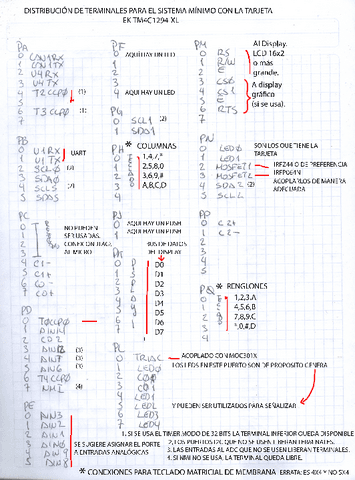 DISTRIBUCIÓN DE TERMINALES PARA EL SISTEMA MÍNIMO CON LA TARJETA
EK TM4C1294 XL
PA
0 CAN1RX
1 CAN1TX
2 U4RX
3 U4TX
4 T2CCP0 (1)
5
6 T3CCP0 (1)
7
PB
0 U1RX
1 U1TX
UART
2 SCL0 (2)
3 SDA0
4 SCL5 (2)
5 SDA5
PC
0
1
2
3
NO PUEDEN
SER USADAS.
CONEXION JTAG,
AL MICRO
4 C1-
5 C1+
6 C0-
7 C0+
PD
0 T0CCP0
1 AIN14
2 CD2
3 (3)
4 AIN7 (3)
5 AIN6 (3)
6 T4CCP0
7 NMI (4)
PE
0 AIN3
1 AIN2
2 AIN1
3 AIN0
4 AIN9
5 AIN8
SE SUGIERE ASIGNAR EL PORTE
A ENTRADAS ANALÓGICAS
PF
0 AQUÍ HAY UN LED
1
2
3
4 AQUÍ HAY UN LED
PG
0 SCL1 (2)
1 SDA1
PH * COLUMNAS
0 1,4,7,*
1 2,5,8,0
2 3,6,9,#
3 A,B,C,D
TECLADO
PJ
0 AQUÍ HAY UN PUSH
1 AQUÍ HAY UN PUSH
BUS DE DATOS
DEL DISPLAY
0 D0
1 D1
2 D2
3 D3
4 D4
5 D5
6 D6
7 D7
PL
0 TRIAC ACOPLADO CON MOC301X
1 LED0
2 CO0
3 CO1
4 LED1
5 LED2
LOS LEDS EN ESTE PUERTO SON DE PROPOSITO GENERA
Y PUEDEN SER UTILIZADOS PARA SEÑALIZAR
PM
0 RS
1 R/W
2 E
Al Display.
LCD 16x2
o más
grande.
3 CS0
4 CS1
5 E
6 RTS
7
A display
gráfico
(si se usa).
PN
0 LED0
1 LED1
SON LOS QUE TIENE LA
TARJETA
2 MOSFET1
3 MOSFET2
IRFZ44 O DE PREFERENCIA
IRFP064N
ACOPLARLOS DE MANERA
ADECUADA
4 SDA2 (2)
5 SCL2
PP
0 C2+
1 C2-
2
3
4
5
PQ * RENGLONES
0 1,2,3,A
1 4,5,6,B
2 7,8,9,C
3 *,0,#,D
4
1. SI SE USA EL TIMER MODO DE 32 BITS LA TERMINAL INFERIOR QUEDA DISPONIBLE
2. LOS PUERTOS I2C QUE NO SE USEN LIBERAN TERMINALES.
3. LAS ENTRADAS AL ADC QUE NO SE USEN LIBERAN TERMINALES.
4. SI NMI NO SE USA, LA TERMINAL QUEDA LIBRE.
* CONEXIONES PARA TECLADO MATRICIAL DE MEMBRANA ERRATA: ES 4X4 Y NO 5X4